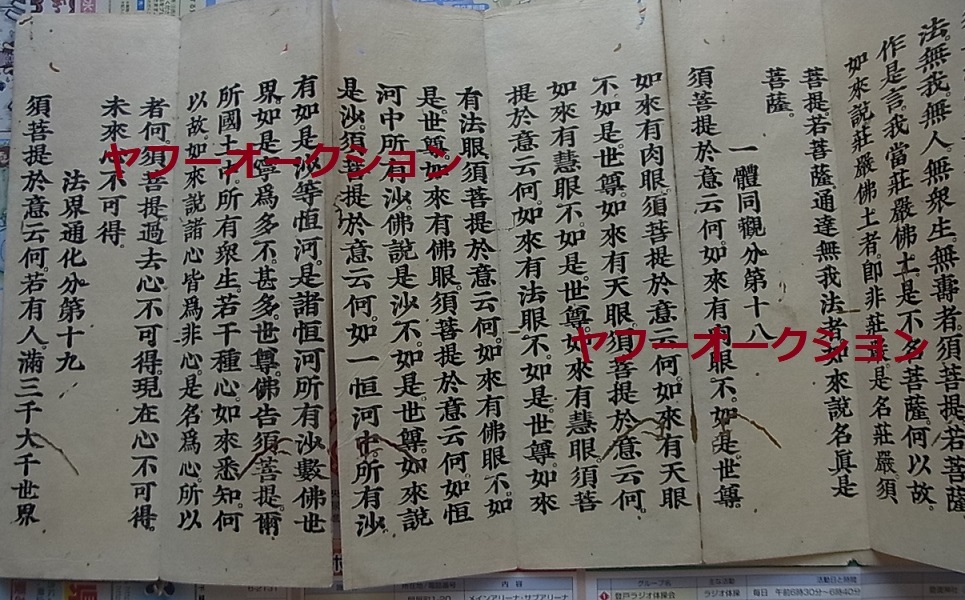 法。無我。無人。無衆生。無壽者。須菩提。若菩薩
作是言。我當莊嚴佛土。是不名菩薩。何以故。
如來說。莊嚴佛土者。即非莊嚴。是名莊嚴。須
菩提。若菩薩通達無我法者。如來說名真是
菩薩。
一體同觀分第十八
須菩提。於意云何。如來有肉眼不。如是。世尊。
如來有肉眼。須菩提。於意云何。如來有天眼
不。如是。世尊。如來有天眼。須菩提。於意云何。
如來有慧眼不。如是。世尊。如來有慧眼。須菩
提。於意云何。如來有法眼不。如是。世尊。如來
有法眼。須菩提。於意云何。如來有佛眼不。如
是。世尊。如來有佛眼。須菩提。於意云何。如恒
河中所有沙。佛說是沙不。如是。世尊。如來說
是沙。須菩提。於意云何。如一恒河中所有沙。
有如是沙等恒河。是諸恒河所有沙數佛世
界。如是寧爲多不。甚多。世尊。佛告須菩提。爾
所國土中。所有衆生。若干種心。如來悉知。何
以故。如來說諸心皆爲非心。是名爲心。所以
者何。須菩提。過去心不可得。現在心不可得。
未來心不可得。
法界通化分第十九
須菩提。於意云何。若有人。滿三千大千世界
ヤフーオークション
ヤフーオークション
内 容
メインアリーナ・サブアリーナ
グループ名
主な活動
活動日と時間
登戸ラジオ体操会
ラジオ体操
毎日 午前6時30分〜6時40分